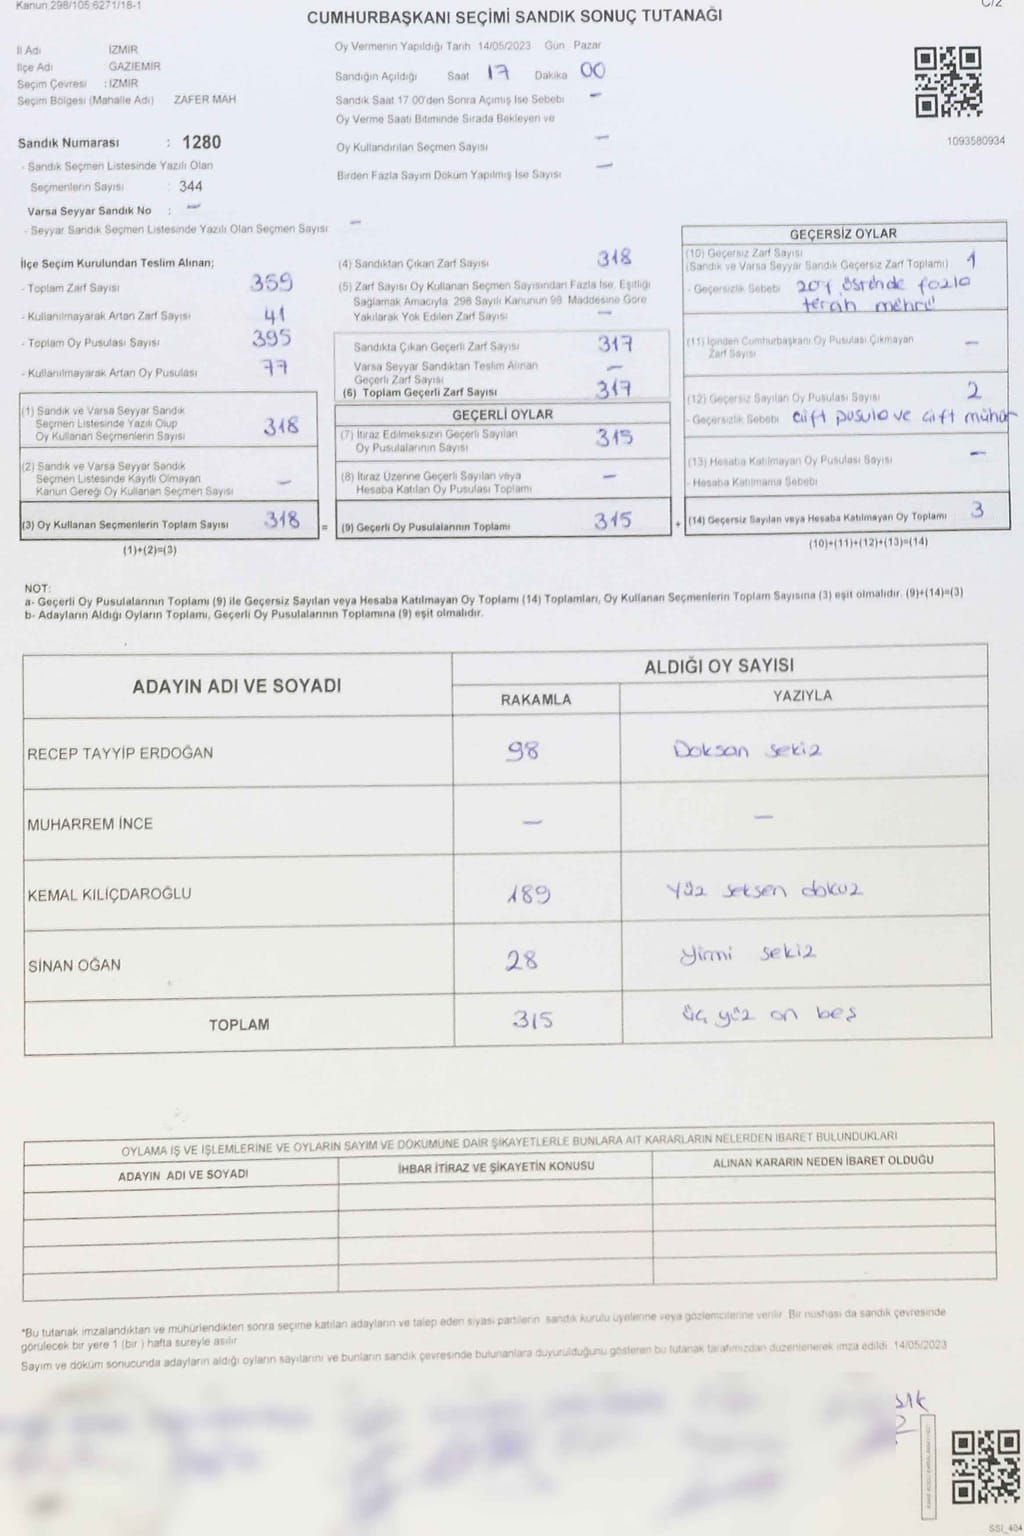 Kanun,298/105,6271/18-1
C/2
CUMHURBAŞKANI SEÇİMİ SANDIK SONUÇ TUTANAĞI
İl Adı İZMİR
İlçe Adı GAZİEMİR
Seçim Çevresi : İZMİR
Seçim Bölgesi (Mahalle Adı) ZAFER MAH
Oy Vermenin Yapıldığı Tarih 14/05/2023 Gün Pazar
Sandığın Açıldığı Saat 17 Dakika 00
Sandık Saat 17 00'den Sonra Açımış İse Sebebi –
Oy Verme Saati Bitiminde Sırada Bekleyen ve
Oy Kullandırılan Seçmen Sayısı –
Birden Fazla Sayım Döküm Yapılmış İse Sayısı –
1093580934
Sandık Numarası : 1280
- Sandık Seçmen Listesinde Yazılı Olan
Seçmenlerin Sayısı : 344
Varsa Seyyar Sandık No : –
- Seyyar Sandık Seçmen Listesinde Yazılı Olan Seçmen Sayısı –
İlçe Seçim Kurulundan Teslim Alınan;
- Toplam Zarf Sayısı 359
- Kullanılmayarak Artan Zarf Sayısı 41
- Toplam Oy Pusulası Sayısı 395
- Kullanılmayarak Artan Oy Pusulası 77
(1) Sandık ve Varsa Seyyar Sandık
Seçmen Listesinde Yazılı Olup
Oy Kullanan Seçmenlerin Sayısı 318
(2) Sandık ve Varsa Seyyar Sandık
Seçmen Listesinde Kayıtlı Olmayan
Kanun Gereği Oy Kullanan Seçmen Sayısı –
(3) Oy Kullanan Seçmenlerin Toplam Sayısı 318 =
(1)+(2)=(3)
(4) Sandıktan Çıkan Zarf Sayısı 318
(5) Zarf Sayısı Oy Kullanan Seçmen Sayısından Fazla İse, Eşitliği
Sağlamak Amacıyla 298 Sayılı Kanunun 98 Maddesine Göre
Yakılarak Yok Edilen Zarf Sayısı –
Sandıkta Çıkan Geçerli Zarf Sayısı 317
Varsa Seyyar Sandıktan Teslim Alınan
Geçerli Zarf Sayısı –
(6) Toplam Geçerli Zarf Sayısı 317
GEÇERLİ OYLAR
(7) İtiraz Edilmeksizin Geçerli Sayılan
Oy Pusulalarının Sayısı 315
(8) İtiraz Üzerine Geçerli Sayılan veya
Hesaba Katılan Oy Pusulası Toplamı –
(9) Geçerli Oy Pusulalarının Toplamı 315 +
GEÇERSİZ OYLAR
(10) Geçersiz Zarf Sayısı
(Sandık ve Varsa Seyyar Sandık Geçersiz Zarf Toplamı) 1
- Geçersizlik Sebebi zarf üstünde fazla
mührü
(11) İçinden Cumhurbaşkanı Oy Pusulası Çıkmayan
Zarf Sayısı –
(12) Geçersiz Sayılan Oy Pusulası Sayısı 2
- Geçersizlik Sebebi çift pusula ve çift mühür
(13) Hesaba Katılmayan Oy Pusulası Sayısı –
- Hesaba Katılmama Sebebi
(14) Geçersiz Sayılan veya Hesaba Katılmayan Oy Toplamı 3
(10)+(11)+(12)+(13)=(14)
NOT:
a- Geçerli Oy Pusulalarının Toplamı (9) ile Geçersiz Sayılan veya Hesaba Katılmayan Oy Toplamı (14) Toplamları, Oy Kullanan Seçmenlerin Toplam Sayısına (3) eşit olmalıdır. (9)+(14)=(3)
b- Adayların Aldığı Oyların Toplamı, Geçerli Oy Pusulalarının Toplamına (9) eşit olmalıdır.
ADAYIN ADI VE SOYADI ALDIĞI OY SAYISI
RAKAMLA YAZIYLA
RECEP TAYYİP ERDOĞAN 98 Doksan sekiz
MUHARREM İNCE – –
KEMAL KILIÇDAROĞLU 189 Yüz seksen dokuz
SİNAN OĞAN 28 yirmi sekiz
TOPLAM 315 üç yüz on beş
OYLAMA İŞ VE İŞLEMLERİNE VE OYLARIN SAYIM VE DÖKÜMÜNE DAİR ŞİKAYETLERLE BUNLARA AİT KARARLARIN NELERDEN İBARET BULUNDUKLARI
ADAYIN ADI VE SOYADI İHBAR İTİRAZ VE ŞİKAYETİN KONUSU ALINAN KARARIN NEDEN İBARET OLDUĞU
*Bu tutanak imzalandıktan ve mühürlendikten sonra seçime katılan adayların ve talep eden siyasi partilerin sandık kurulu üyelerine veya gözlemcilerine verilir. Bir nüshası da sandık çevresinde
görülecek bir yere 1 (bir ) hafta süreyle asılır
Sayım ve döküm sonucunda adayların aldığı oyların sayılarını ve bunların sandık çevresinde bulunanlara duyurulduğunu gösteren bu tutanak tarafımızdan düzenlenerek imza edildi. 14/05/2023
SSI_404